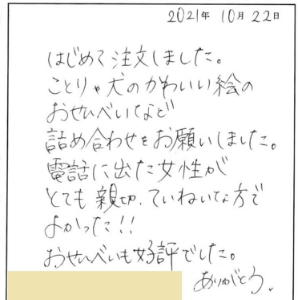 2021年 10月 22日
はじめて注文しました。
ことりや犬のかわいい絵の
おせんべいなど
詰め合わせをお願いしました。
電話に出た女性が
とても親切、ていねいな方で
よかった!!
おせんべいも好評でした。
ありがとう。